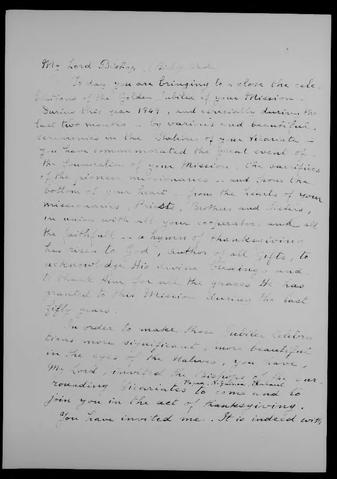 My Lord Bishop,
To day you are bringing to a close the cele-
brations of the Golden Jubilee of your Mission.
During this year 1949, and especially during the
last two months - by various and beautiful
ceremonies in the Stations of your Vicariate -
you have commemorated the great event of
the foundation of your Mission, the sacrifices
of the pioneer missionaries - and from the
bottom of your heart, from the hearts of your
missionaries, Priests, Brothers and Sisters,
in union with all your cooperators and all
the faithful - a hymn of thanksgiving
has risen to God, author of all gifts, to
acknowledge His divine blessings and
to thank Him for all the graces He has
granted to this Mission during the last
fifty years.
In order to make these Jubilee Celebra-
tions more significant, more beautiful
in the eyes of the Natives, you have,
My Lord, invited the Bishops of the sur-
rounding Vicariates to come and to
join you in the act of thanksgiving.
You have invited me. It is indeed with